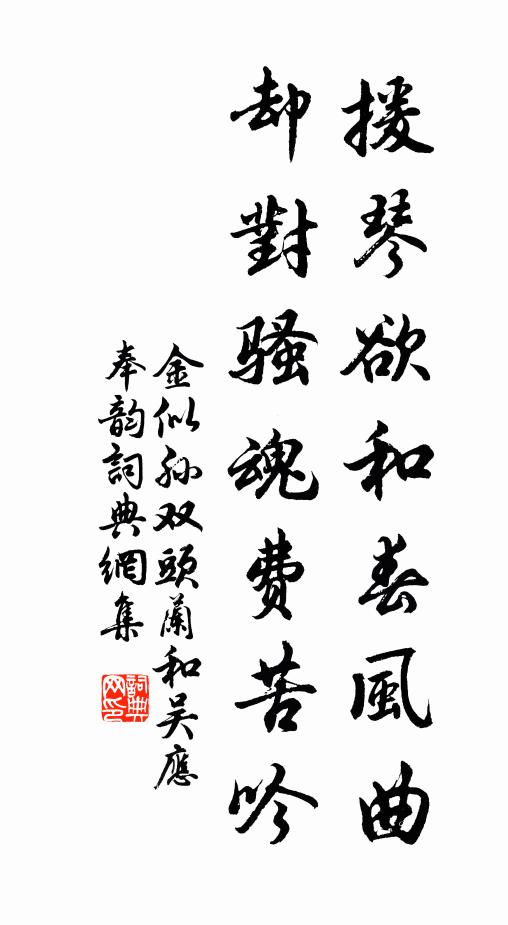 援琴欲和春風曲
却對騷魂費苦吟
金似孙双頭蘭和吴應
奉韵詞典網集
詞典
网印